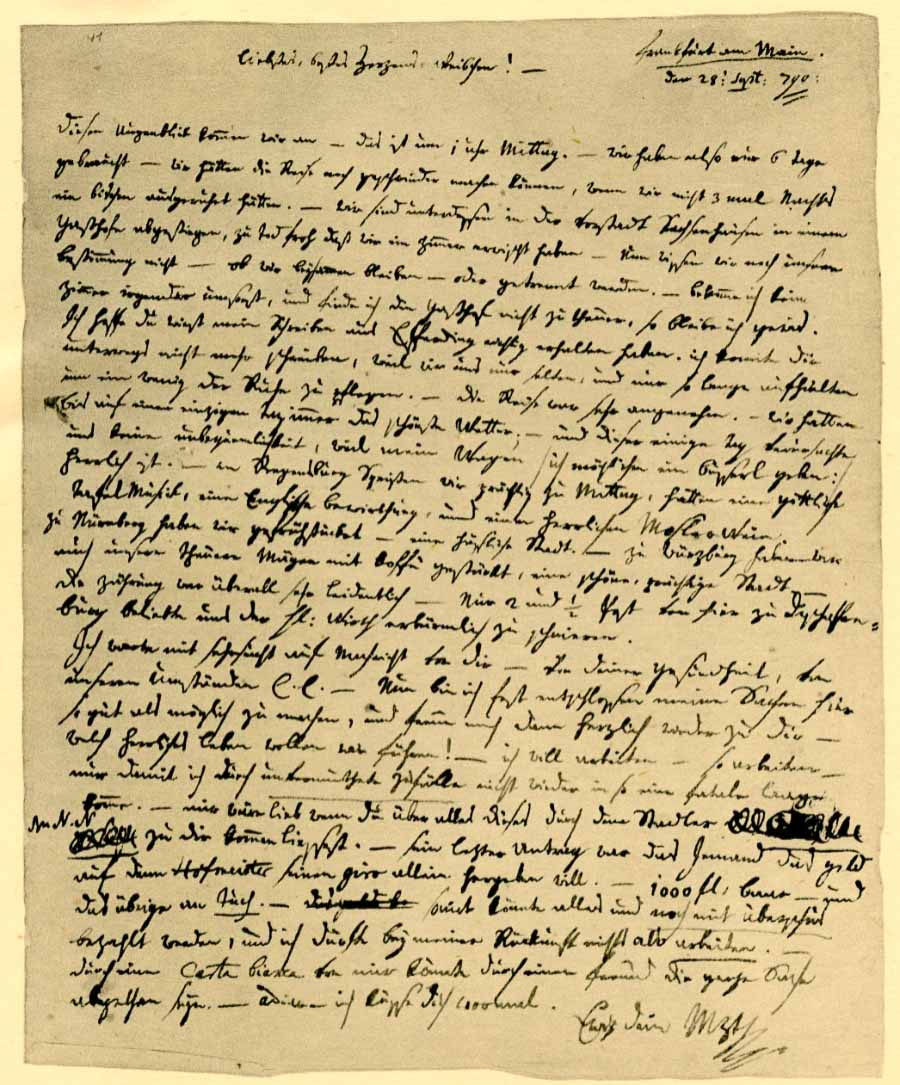 Liebstes, bestes Herzens-Weibchen! —
Frankfurt am Main.
den 28:t Sept: 790:
Diesen Augenblick kommen wir an — das ist um 1 uhr Mittag. — wir haben also nur 6 täge
gebraucht — wir hätten die Reise noch geschwinder machen können, wenn wir nicht 3 mal Nachts
ein bischen ausgeruhet hätten. — wir sind unterdessen in der Vorstadt Sachsenhausen in einem
Gasthofe abgestiegen, zu tod froh daß wir ein Zimmer erwischt haben — Nun wissen wir noch unsere
bestimmung nicht — ob wir beysamen bleiben — oder getrennt werden. — bekomme ich kein
Zimmer irgendwo umsonst, und finde ich die Gasthöfe nicht zu theuer, so bleibe ich gewis.
Ich hoffe du wirst mein Schreiben aus Efferding richtig erhalten haben. ich konnte dir
unterwegs nicht mehr schreiben, weil wir uns nur selten, und nur so lange aufhielten
um ein wenig der Ruhe zu pflegen. — die Reise war sehr angenehm. — wir hatten
bis auf einen einzigen tag immer das schönste Wetter; — und dieser einzige tag verursachte
uns keine unbequemlichkeit, weil mein Wagen /: ich möchte ihm ein busserl geben :/
herrlich ist. — in Regensburg Speisten wir prächtig zu Mittag, hatten eine göttliche
tafel Musick, eine Englische bewirthung, und einen herrlichen Mosler-Wein.
zu Nürnberg haben wir gefrühstückt — eine hässliche Stadt. — zu Würzburg haben wir
auch unsere theuere Mägen mit koffé gestärkt, eine schöne, prächtige Stadt —
die zöhrung war überall sehr leidentlich — Nur 2 und ½ Post von hier zu Aschaffen=
burg beliebte uns der H: Wirth erbärmlich zu schnieren.
Ich warte mit sehnsucht auf Nachricht von dir — von deiner Gesundheit, von
unseren umständen C. C. — Nun bin ich fest entschlossen meine Sachen hier
so gut als möglich zu machen, und freue mich dann herzlich wieder zu dir —
welch herrliches leben wollen wir führen! — ich will arbeiten — so arbeiten —
nur damit ich durch unvermuthete zufälle nicht wieder in so eine fatale laage
komme. — mir wäre lieb wenn du über alles dieses durch den Stadler
N. N. zu dir kommen liessest. — sein letzter Antrag war daß Jemand das geld
auf dem Hofmeister seinen giro allein hergeben will. — 1000 fl: baar — und
das übrige an Tuch. — somit könnte alles und noch mit überschus
bezahlt werden, und ich dürfte bey meiner Rückunft nichts als arbeiten. —
durch eine Carta bianca von mir könnte durch einen freund die ganze Sache
abgethan seyn. — adieu — ich küsse dich 1000mal.
Ewig dein Mzt